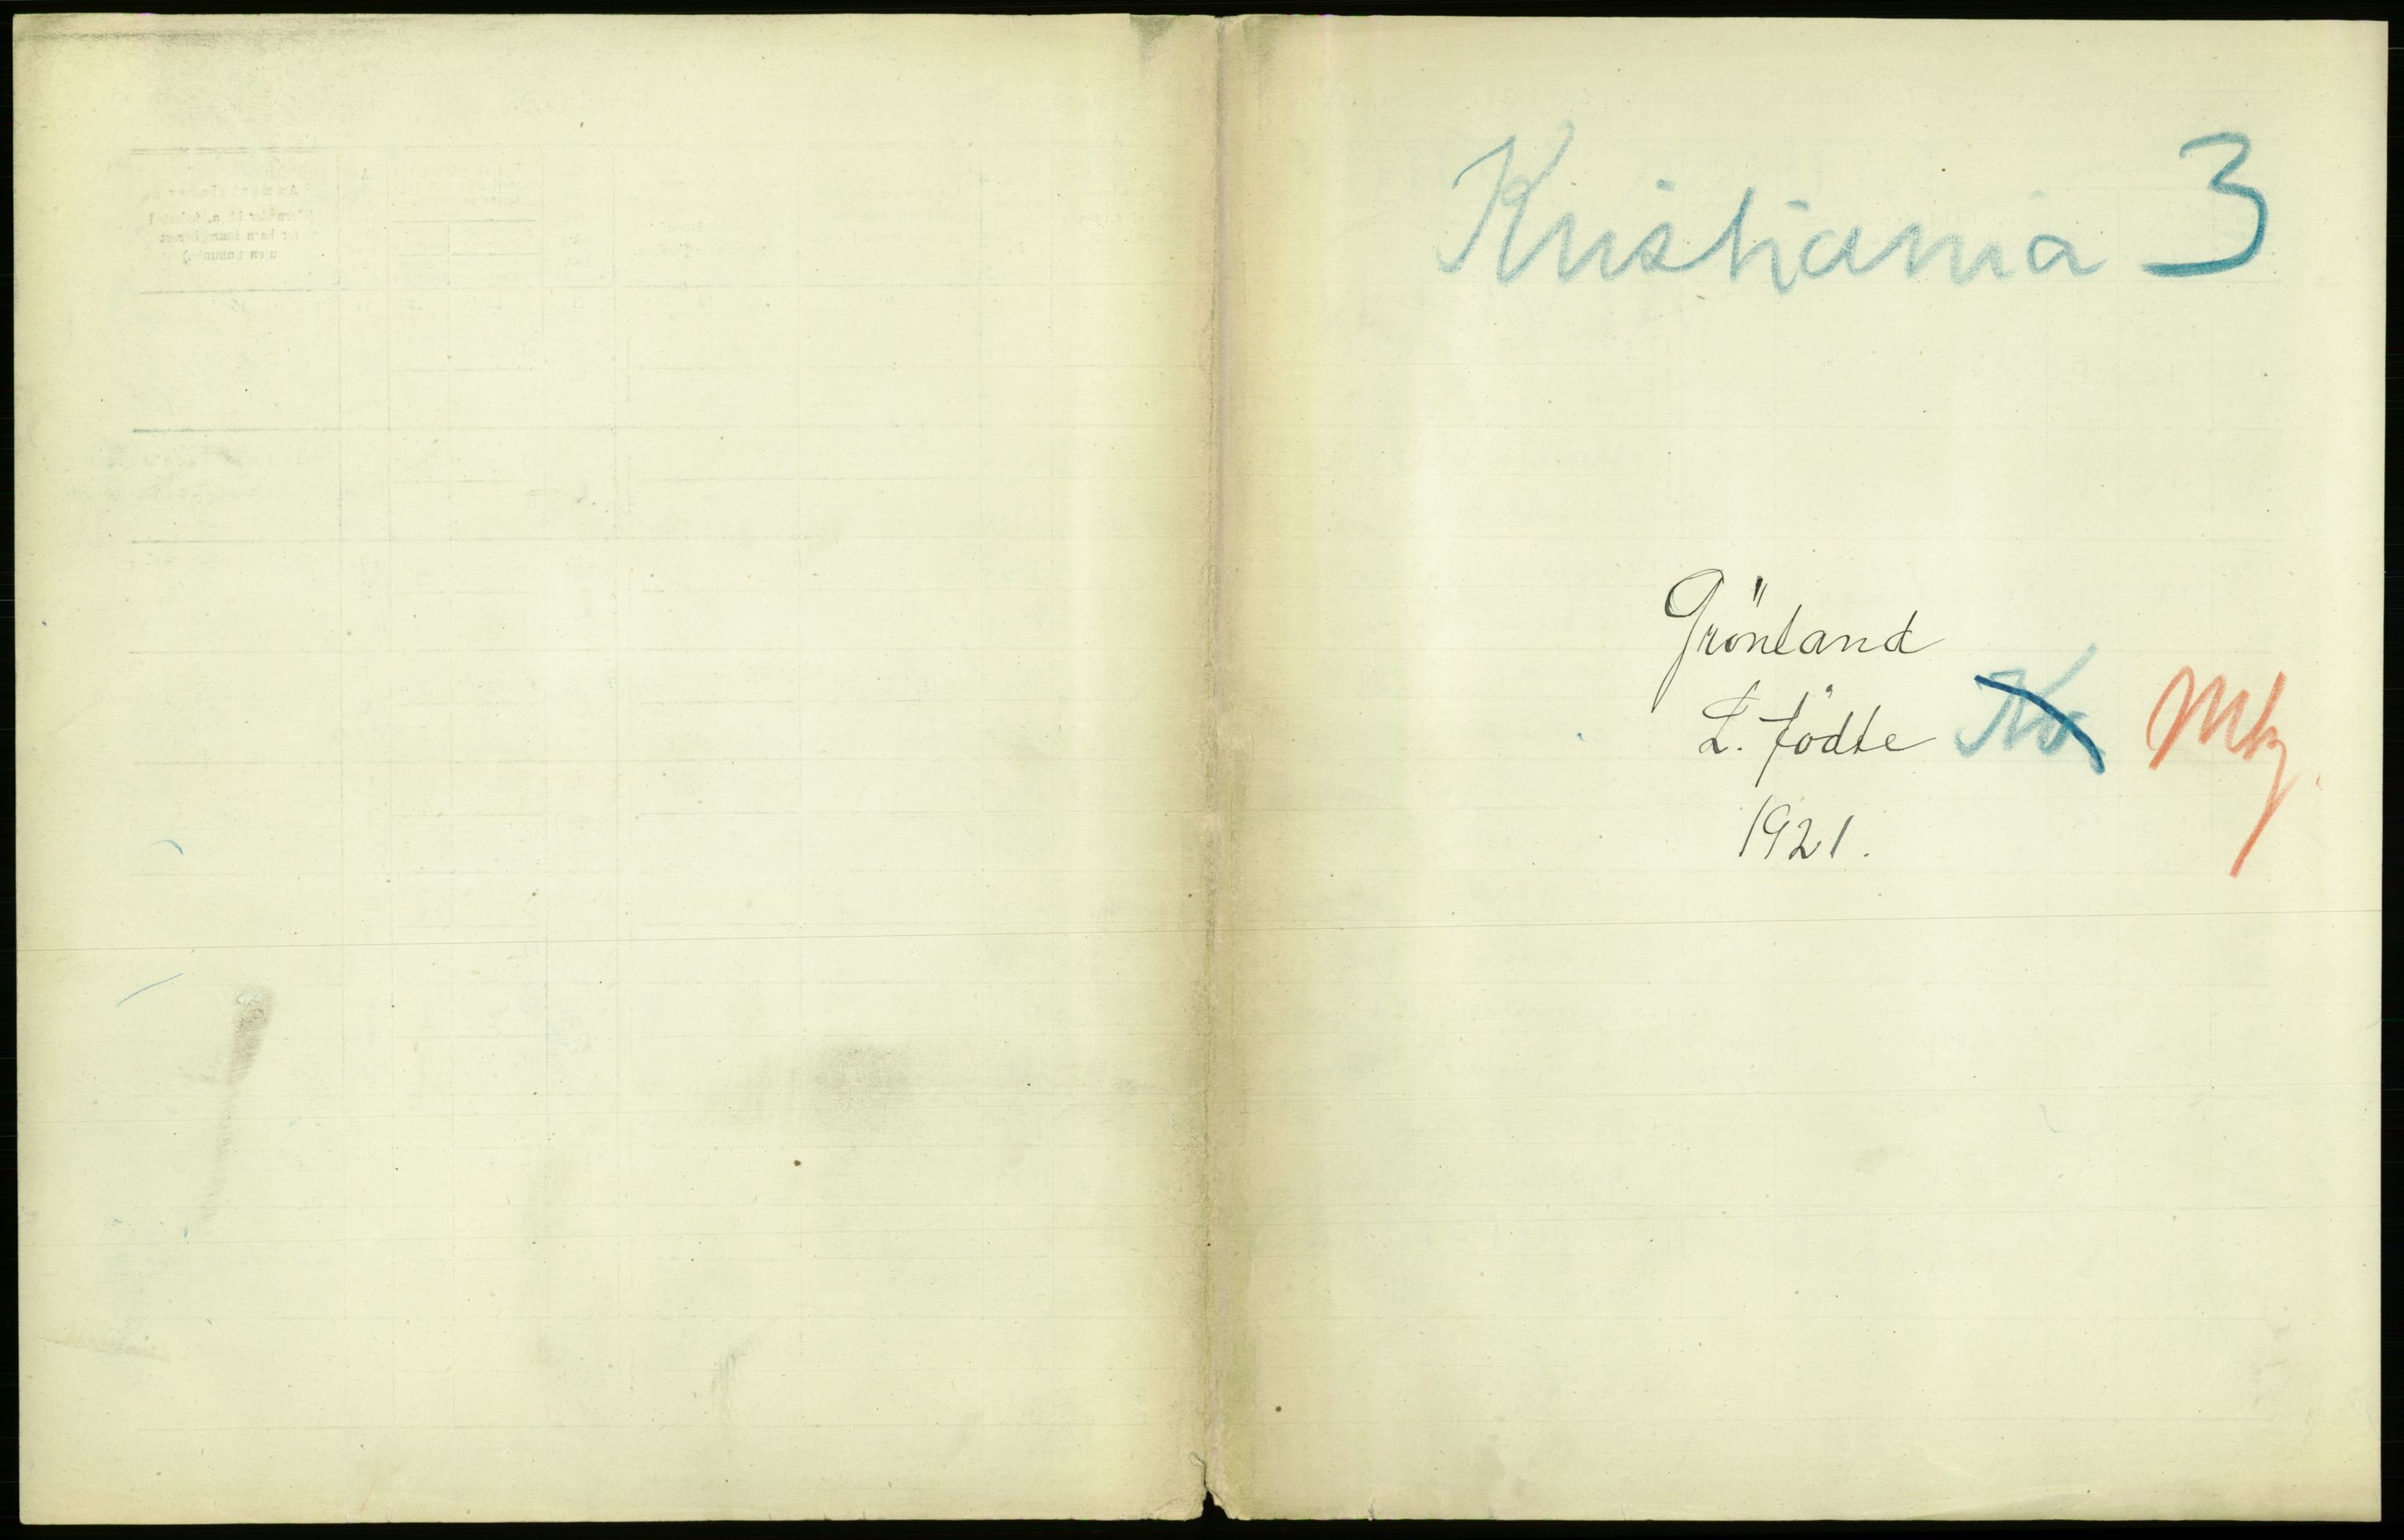 Kristiania 3
Grönland
L. födte Kv. Mk
1921.